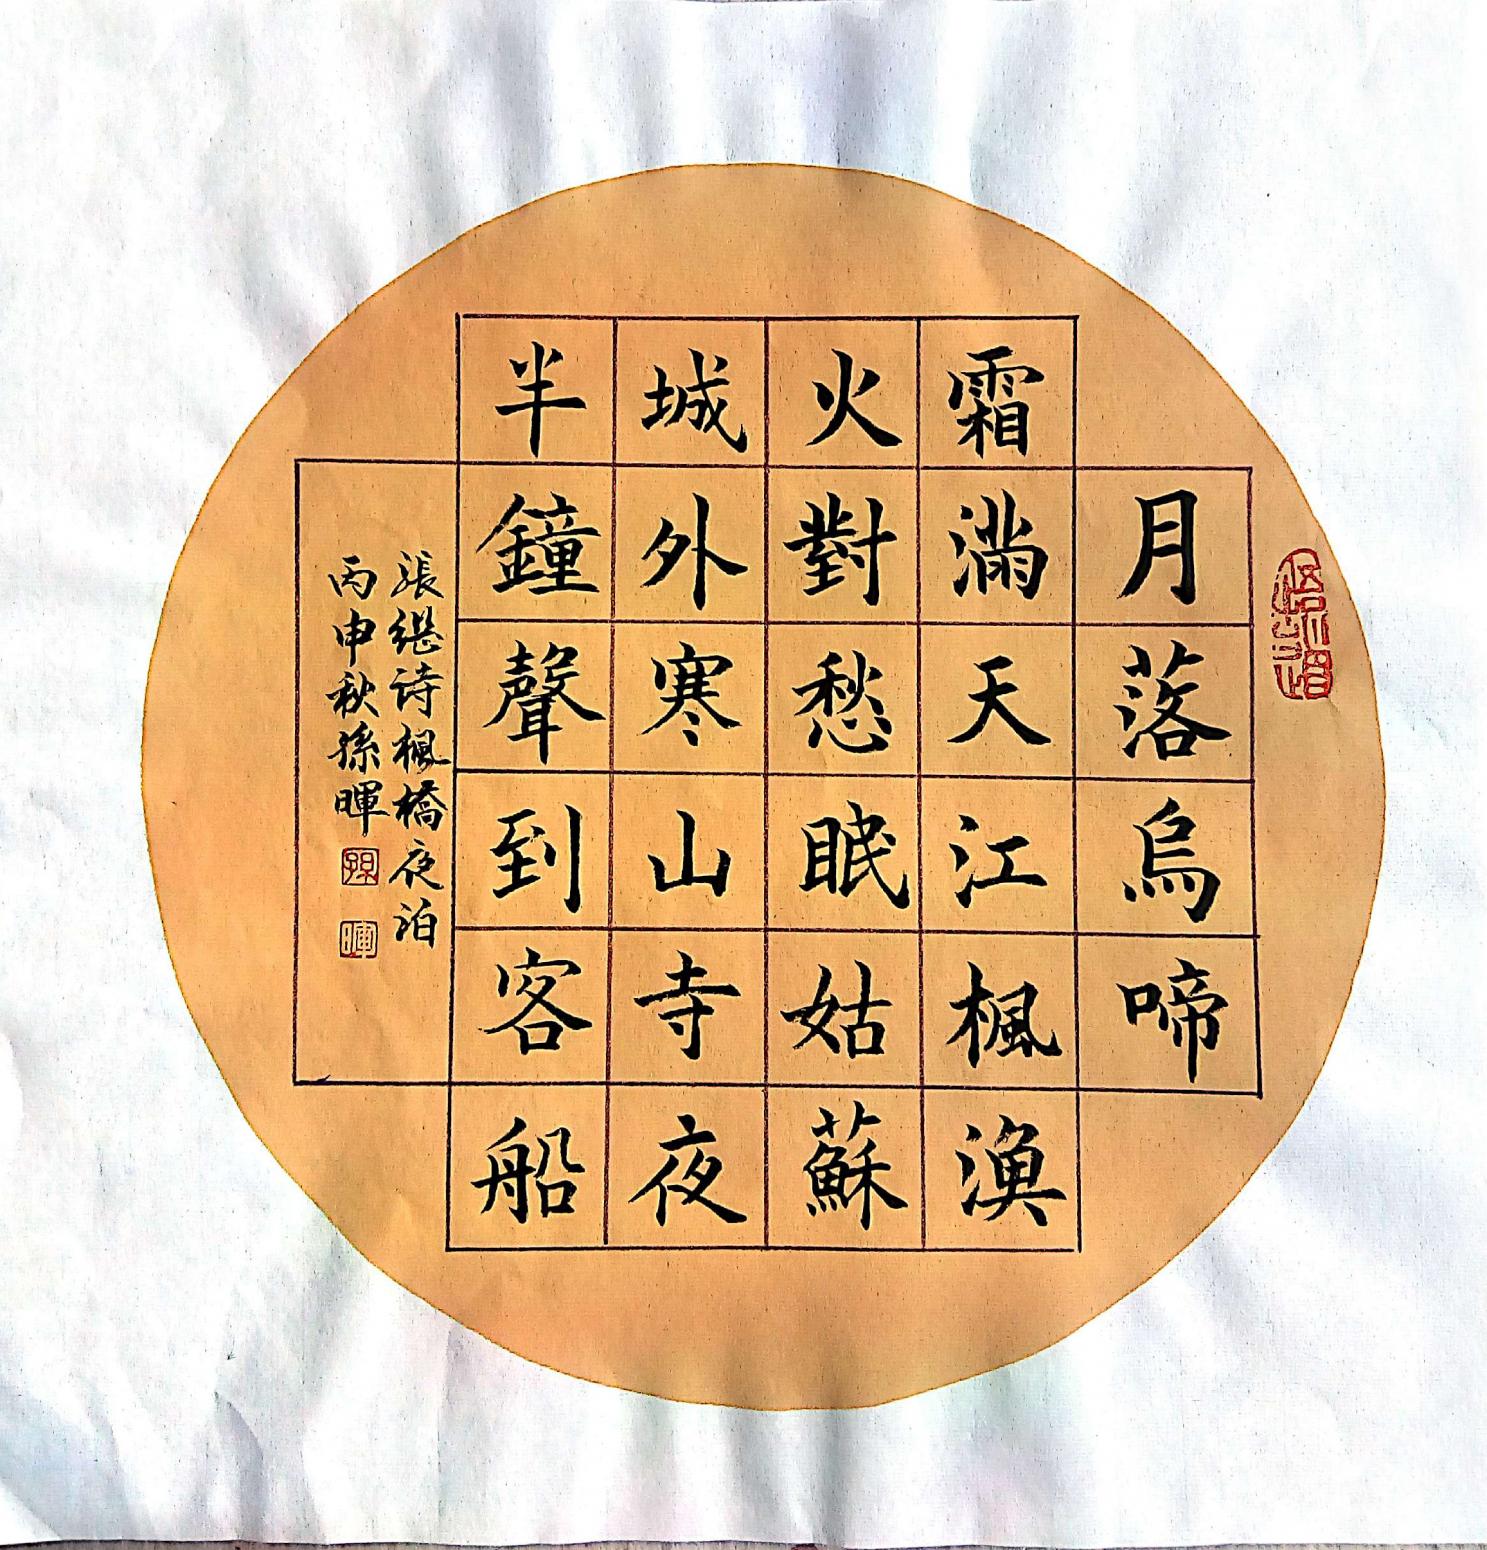 月落烏啼
霜滿天江楓漁
火對愁眠姑蘇
城外寒山寺夜
半鐘聲到客船
張継诗楓橋夜泊
丙申秋孫暉
孫
暉